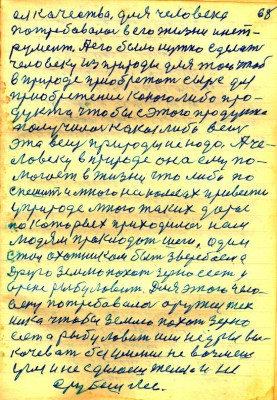 68
ел качества, для человека
потребовалос в его жизни инст-
румент. Чего было нужно сделат
человеку из природы для того чтоб
в природе приобретат сырье дл
приобретение какого либо про-
дукта чтобы с этого продукта
получилас какая либо вещ
эта вещ природы не надо. А че-
ловеку в природе она ему по-
могает в жизни что либо по
спешит и много на колесах привести
у природе много таких дорог
по которых приходилос нам
людям прокладыват шеги. Один
стал охотником быт зверобоем
друго землю похот зерно сеет у
время рыбу ловит. Для этого чело-
веку потребовалос оружие тех
ника чтобы землю похот зерно
сеят а рыбу ловит или недры вы-
качеват без имение не возмеш
угля и не сделаеш тепло и не
срубаеш лес.